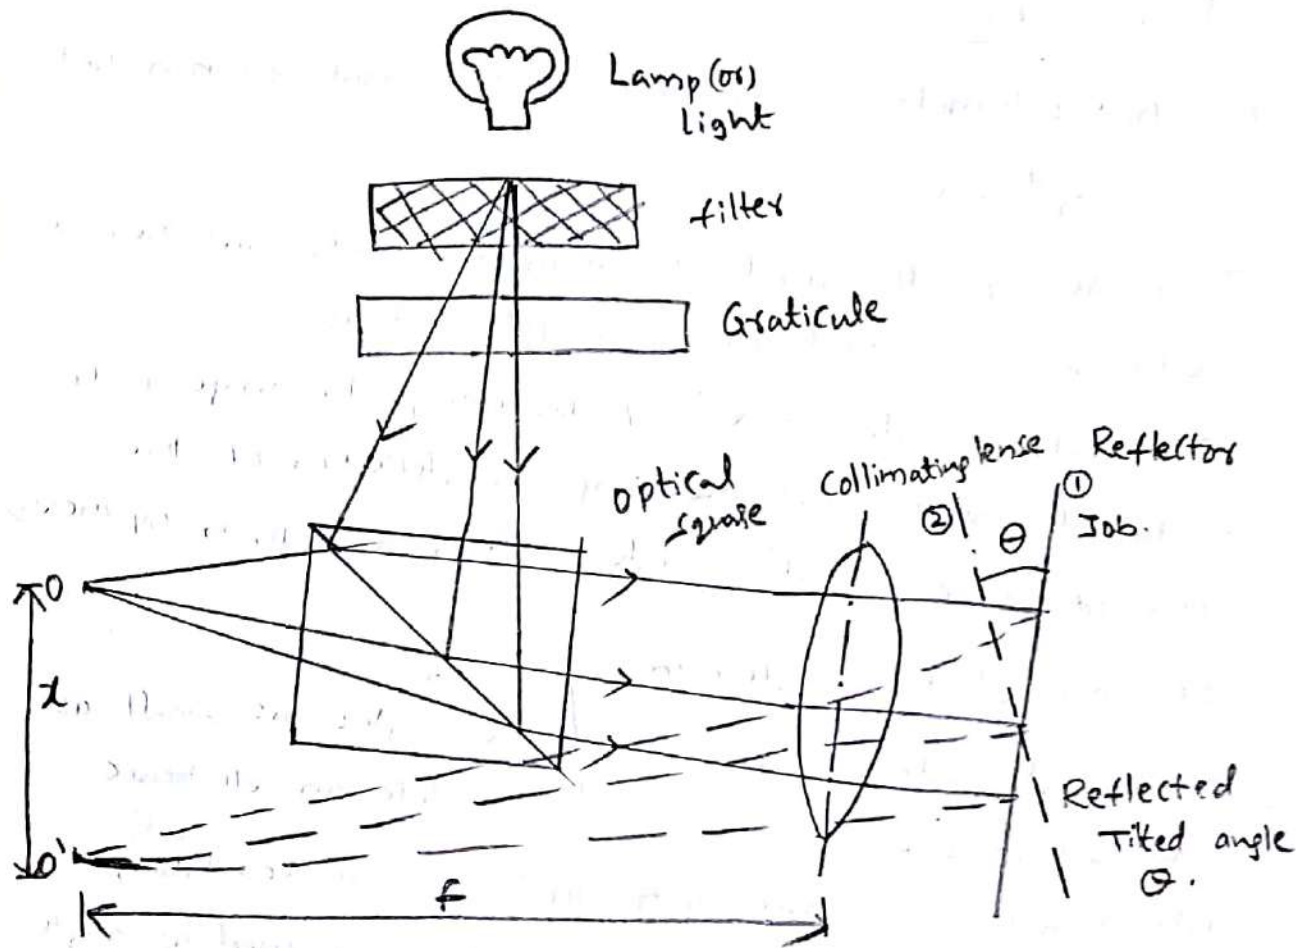 Lamp (or)
light
filter
Graticule
optical
square
Collimating lense
Reflector
①
②
Job.
θ
O
x
O'
f
Reflected
Tilted angle
θ.